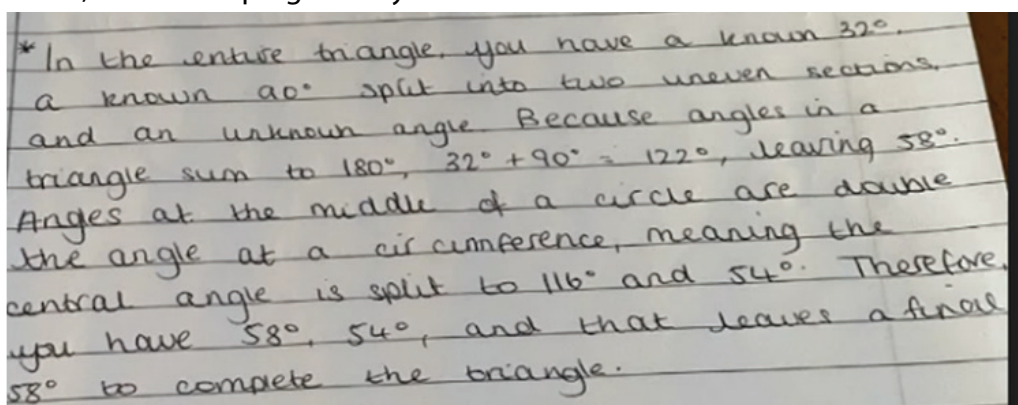 * In the entire triangle, you have a known 32°,
a known 90° split into two uneven sections,
and an unknown angle. Because angles in a
triangle sum to 180°, 32° + 90° = 122°, leaving 58°.
Anges at the middle of a circle are double
the angle at a circumference, meaning the
central angle is split to 116° and 54°. Therefore,
you have 58°, 54°, and that leaves a final
58° to complete the triangle.